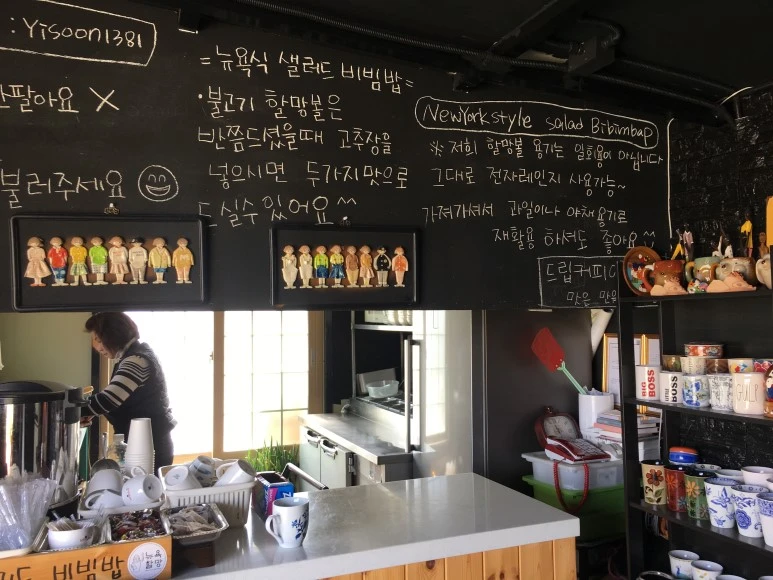 : Yisoon1381
안팔아요 X
불러주세요
= 뉴욕식 샐러드 비빔밥 =
·불고기 할망볼은
반쯤드셨을때 고추장을
넣으시면 두가지맛으로
드실수있어요^^
NewYorkstyle salad Bibimbap
※ 저희 할망볼 용기는 일회용이 아닙니다
그대로 전자레인지 사용가능~
가져가셔서 과일이나 야채용기로
재활용 하셔도 좋아요^^
드립커피
BIG BOSS
BOSS
비빔밥
뉴욕
할망